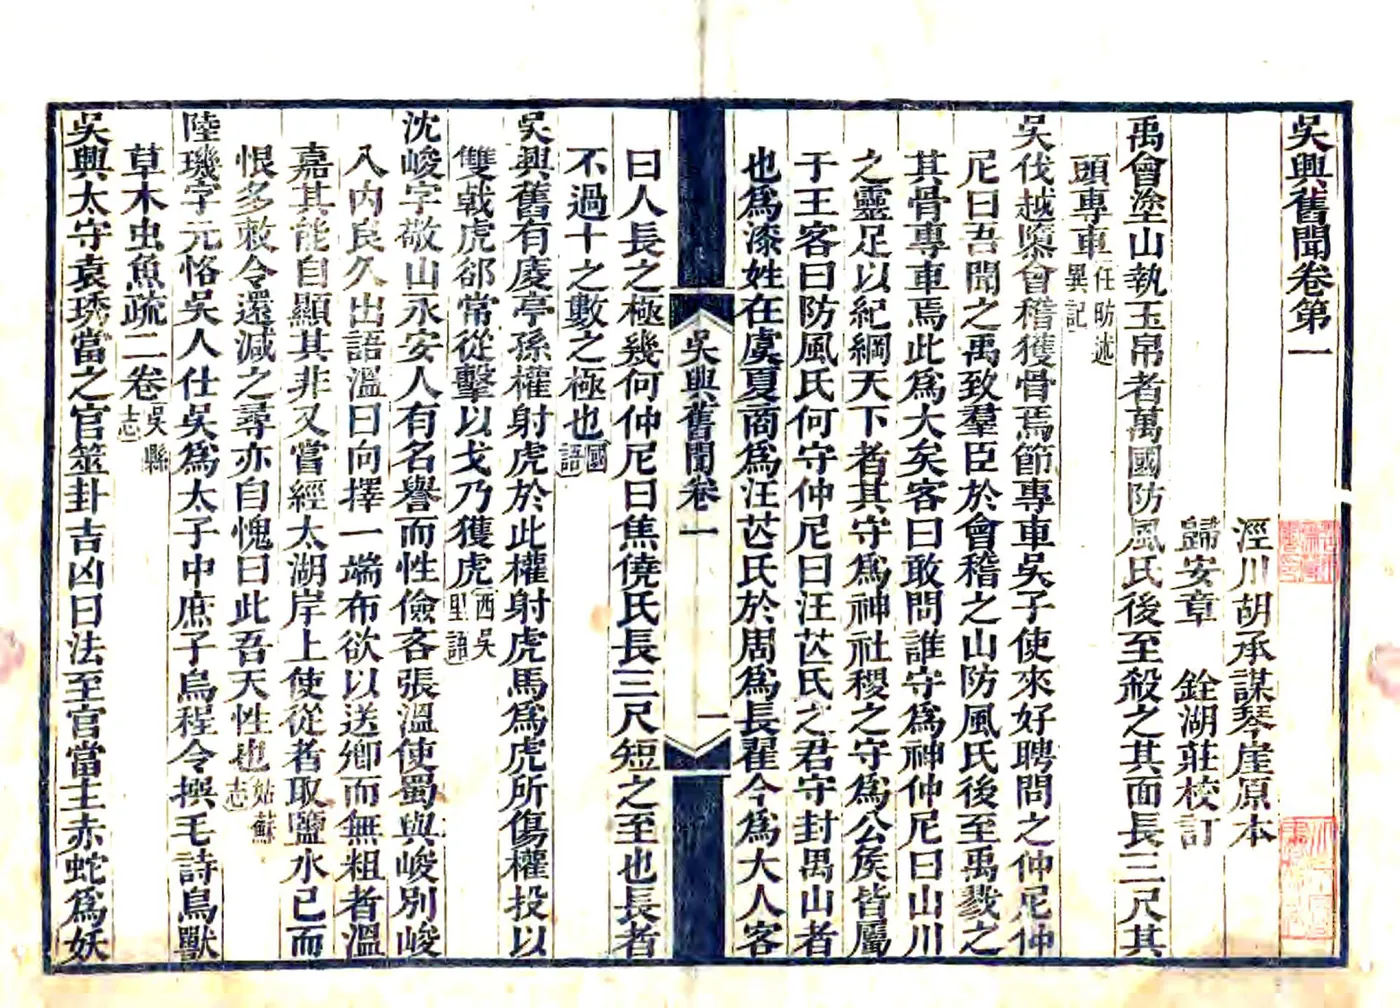 吳興舊聞卷第一
涇川胡承謀琴崖原本
歸安章　銓湖莊校訂
禹會塗山執玉帛者萬國防風氏後至殺之其面長三尺其
頭專車任昉述異記
吳伐越墮會稽獲骨焉節專車吳子使來好聘問之仲尼仲
尼曰吾聞之禹致羣臣於會稽之山防風氏後至禹戮之
其骨專車焉此爲大矣客曰敢問誰守爲神仲尼曰山川
之靈足以紀綱天下者其守爲神社稷之守爲公矦皆屬
于王客曰防風氏何守仲尼曰汪芒氏之君守封禺山者
也爲漆姓在虞夏商爲汪芒氏於周爲長翟今爲大人客
吳興舊聞卷一
一
曰人長之極幾何仲尼曰焦僥氏長三尺短之至也長者
不過十之數之極也國語
吳興舊有慶亭孫權射虎於此權射虎馬爲虎所傷權投以
雙戟虎卻常從擊以戈乃獲虎西吳里語
沈峻字敬山永安人有名譽而性儉吝張溫使蜀與峻別峻
入內良久出語溫曰向擇一端布欲以送卿而無粗者溫
嘉其能自顯其非又嘗經太湖岸上使從者取鹽水已而
恨多敕令還減之尋亦自愧曰此吾天性也姑蘇志
陸璣字元恪吳人仕吳爲太子中庶子烏程令撰毛詩鳥獸
草木虫魚疏二卷吳縣志
吳興太守袁琇當之官筮卦吉凶曰法至官當主赤蛇爲妖